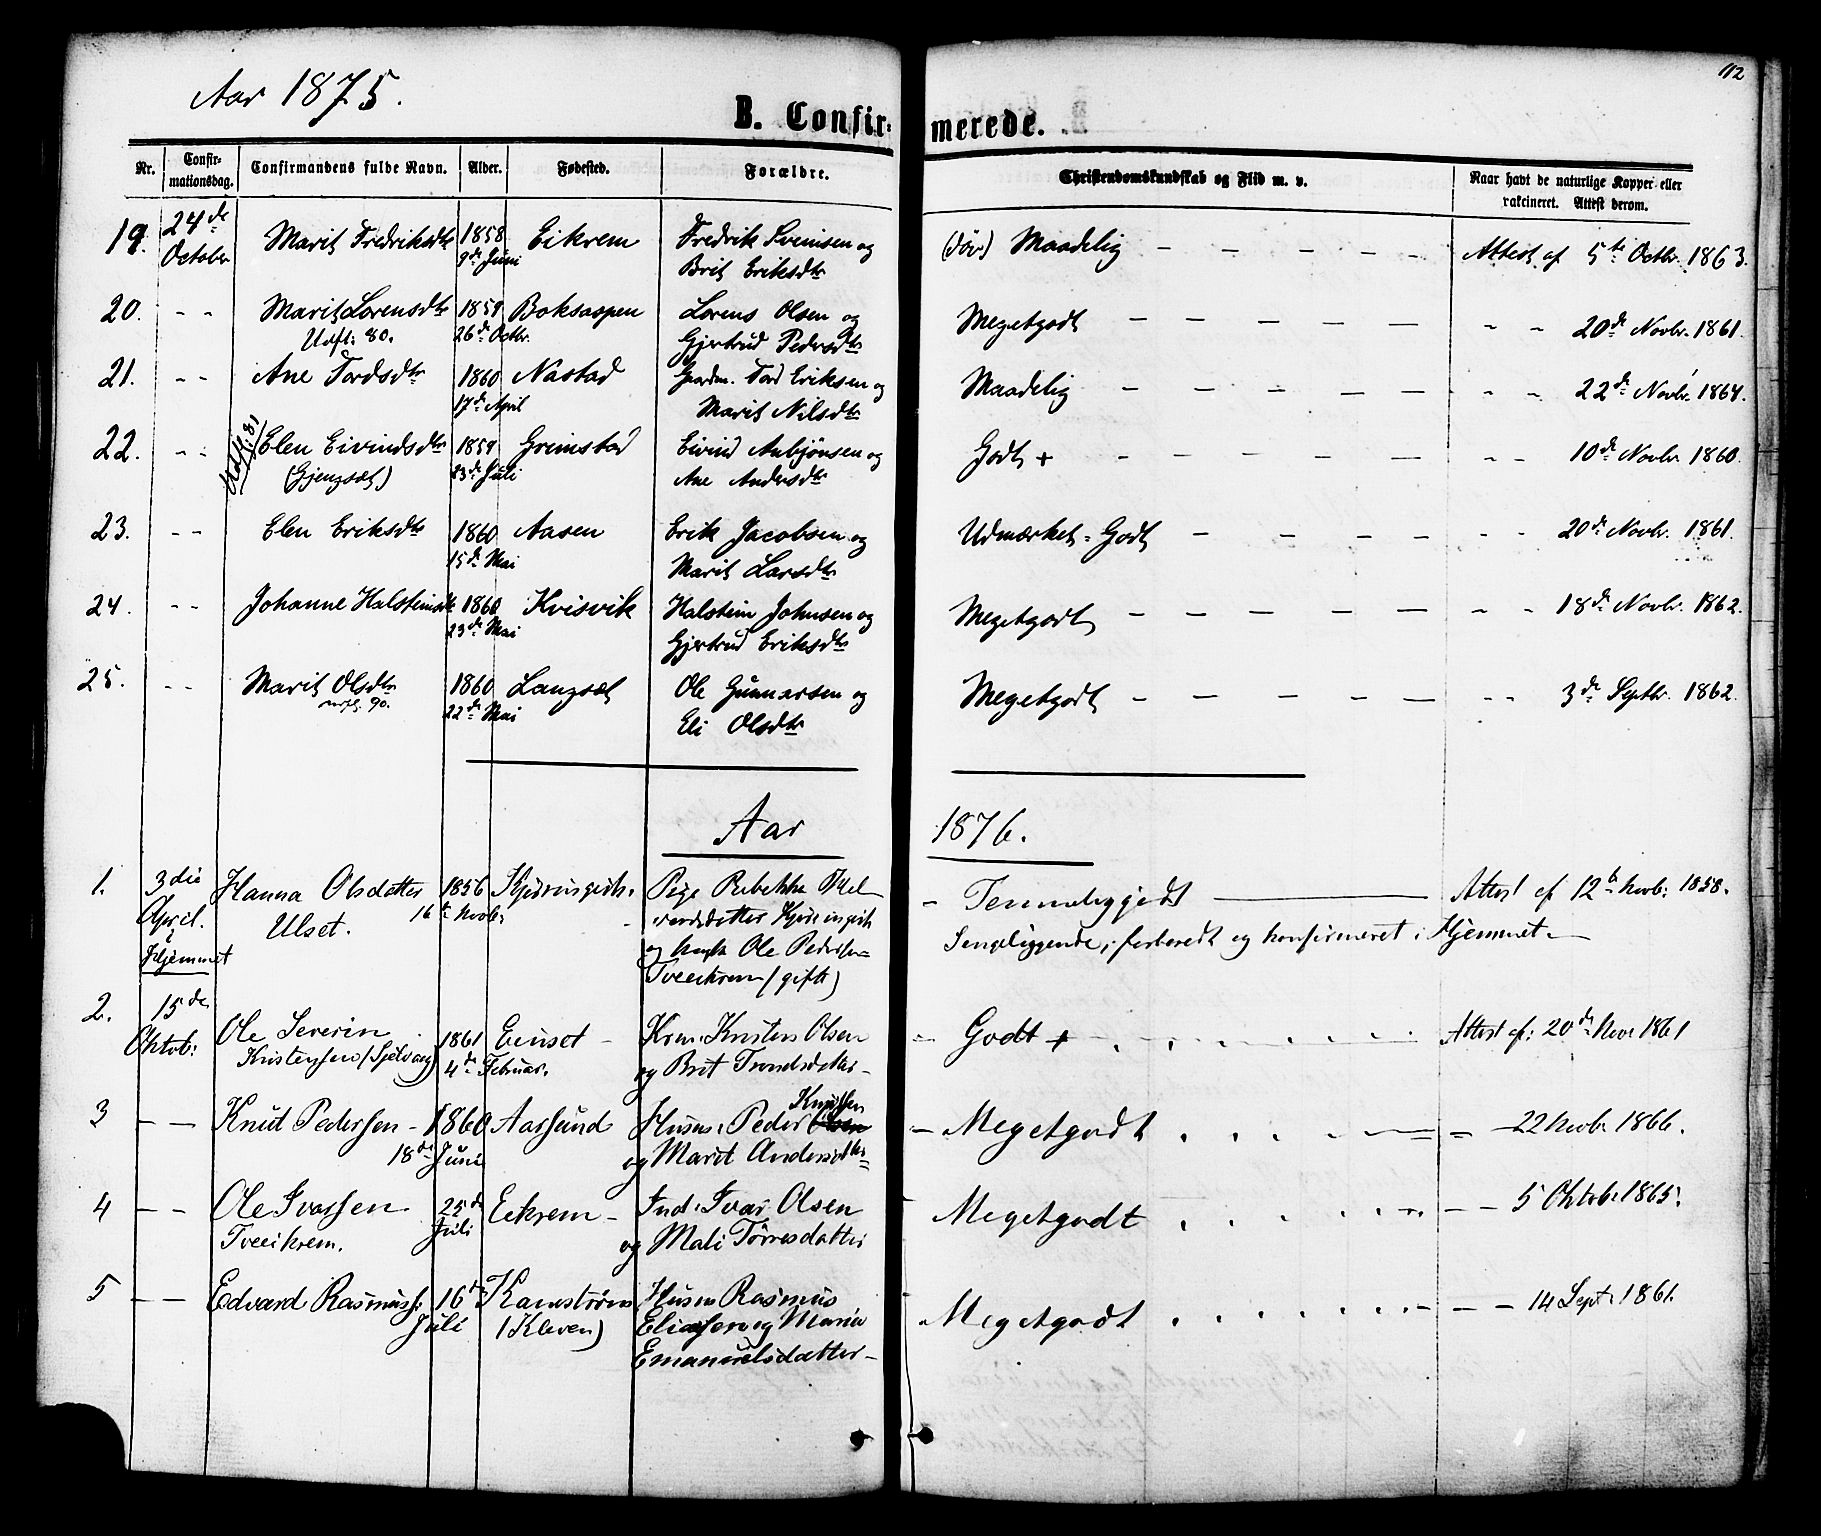 Aar 1875.
112
B. Confirmerede.
Nr. Confirmationsdag. Confirmandens fulde Navn. Alder. Fødested. Forældre. Christendomskundskab og Flid m. v. Naar havt de naturlige Kopper eller vakcineret. Attest derom.
19. 24de October Marit Fredriksdtr 1858 9de Juni Eikrem Fredrik Svensen og Brit Eriksdtr (döv) Maadelig - - - - Attest af 5te Octbr. 1863.
20. - - Marit Lorensdtr Udfl: 80. 1859 26de Octbr. Boksaspen Lorens Olsen og Gjertrud Pedersdtr Megetgodt - - - - - - - 20de Novbr. 1861.
21. - - Ane Tordsdtr 1860 17de April Nastad Gaardm. Tord Eriksen og Marit Nilsdtr Maadelig - - - - - - - 22de Novbr. 1864.
22. - - Udfl: 81 Elen Eivindsdtr (Gjengsæt) 1859 23de Juli Grimstad Eivind Anbjönsen og Ane Andersdtr Godt + - - - - - - - 10de Novbr 1860.
23. - - Elen Eriksdtr 1860 15de Mai Aasen Erik Jacobsen og Marit Larsdtr Udmærket-Godt - - - - - - 20de Novbr. 1861.
24. - - Johanne Halsteinsdtr 1860 23de Mai Kvisvik Halstein Johnsen og Gjertrud Eriksdtr Megetgodt - - - - - - - 18de Novbr. 1862.
25. - - Marit Olsdtr udfl. 90. 1860 22de Mai Langsæt Ole Gunnarsen og Eli Olsdtr Megetgodt - - - - - - - 3de Septbr. 1862.
Aar 1876.
1. 3die April. i Hjemmet Hanna Olsdatter Ulset. 1856 16de Novb: Pige Rebekka og Ole Pedersen Tveeikrem (gift) - Attest af 12te Novb: 1858.
Sengeliggende, forberedt og konfirmeret i Hjemmet.
2. 15de Oktob: Ole Severin Kristensen (Sjelvaag) 1861 4de Februar. Eenset - Kristen Olsen og Brit Trondsdatter - - Godt + - Attest af: 20de Nov: 1861
3 - - Knut Pedersen - 1860 18de Juni Aarsund Husm: Peder Olsen Knutsen og Marit Andersdtr: - Megetgodt - 22 Novb: 1866.
4 - - Ole Ivarsen Tveeikrem. 25de Juli Eekrem - Ind: Ivar Olsen og Mali Törresdatter Megetgodt - - 5 Oktob: 1865.
5 - - Edvard Rasmuss: 16de Juli Kamströms (Kleven) Husm Rasmus Eliassen og Maria Emanuelsdatter - Megetgodt - - 14 Sept: 1861.